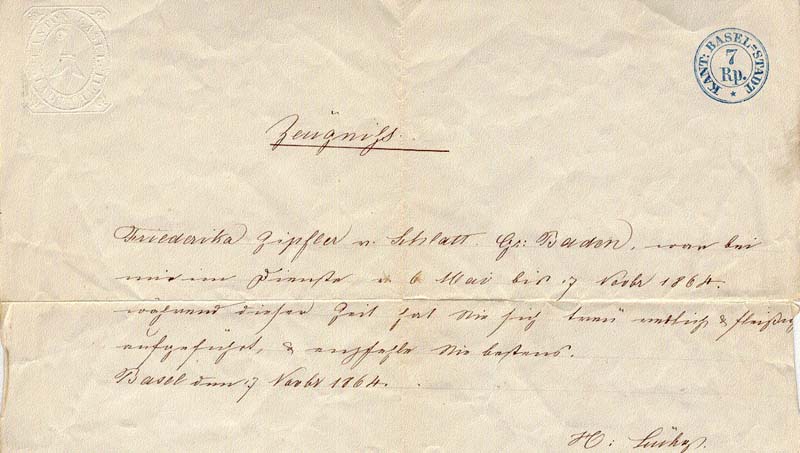 KANT: BASEL-STADT
7
Rp.
Zeugniss.
Friederika Zipfler v. Schlatt. Gr: Baden, war bei
mir im Dienste v. 6 Mai bis 7 Novbr 1864.
während dieser Zeit hat sie sich treu redlich & fleißig
aufgeführt, & empfehle sie bestens.
Basel den 7 Novbr 1864.
H: